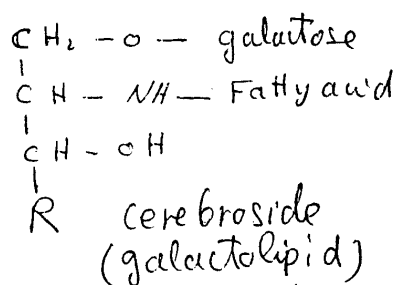 CH₂ - O - galactose
CH - NH - Fatty acid
CH - OH
R cerebroside
(galactolipid)